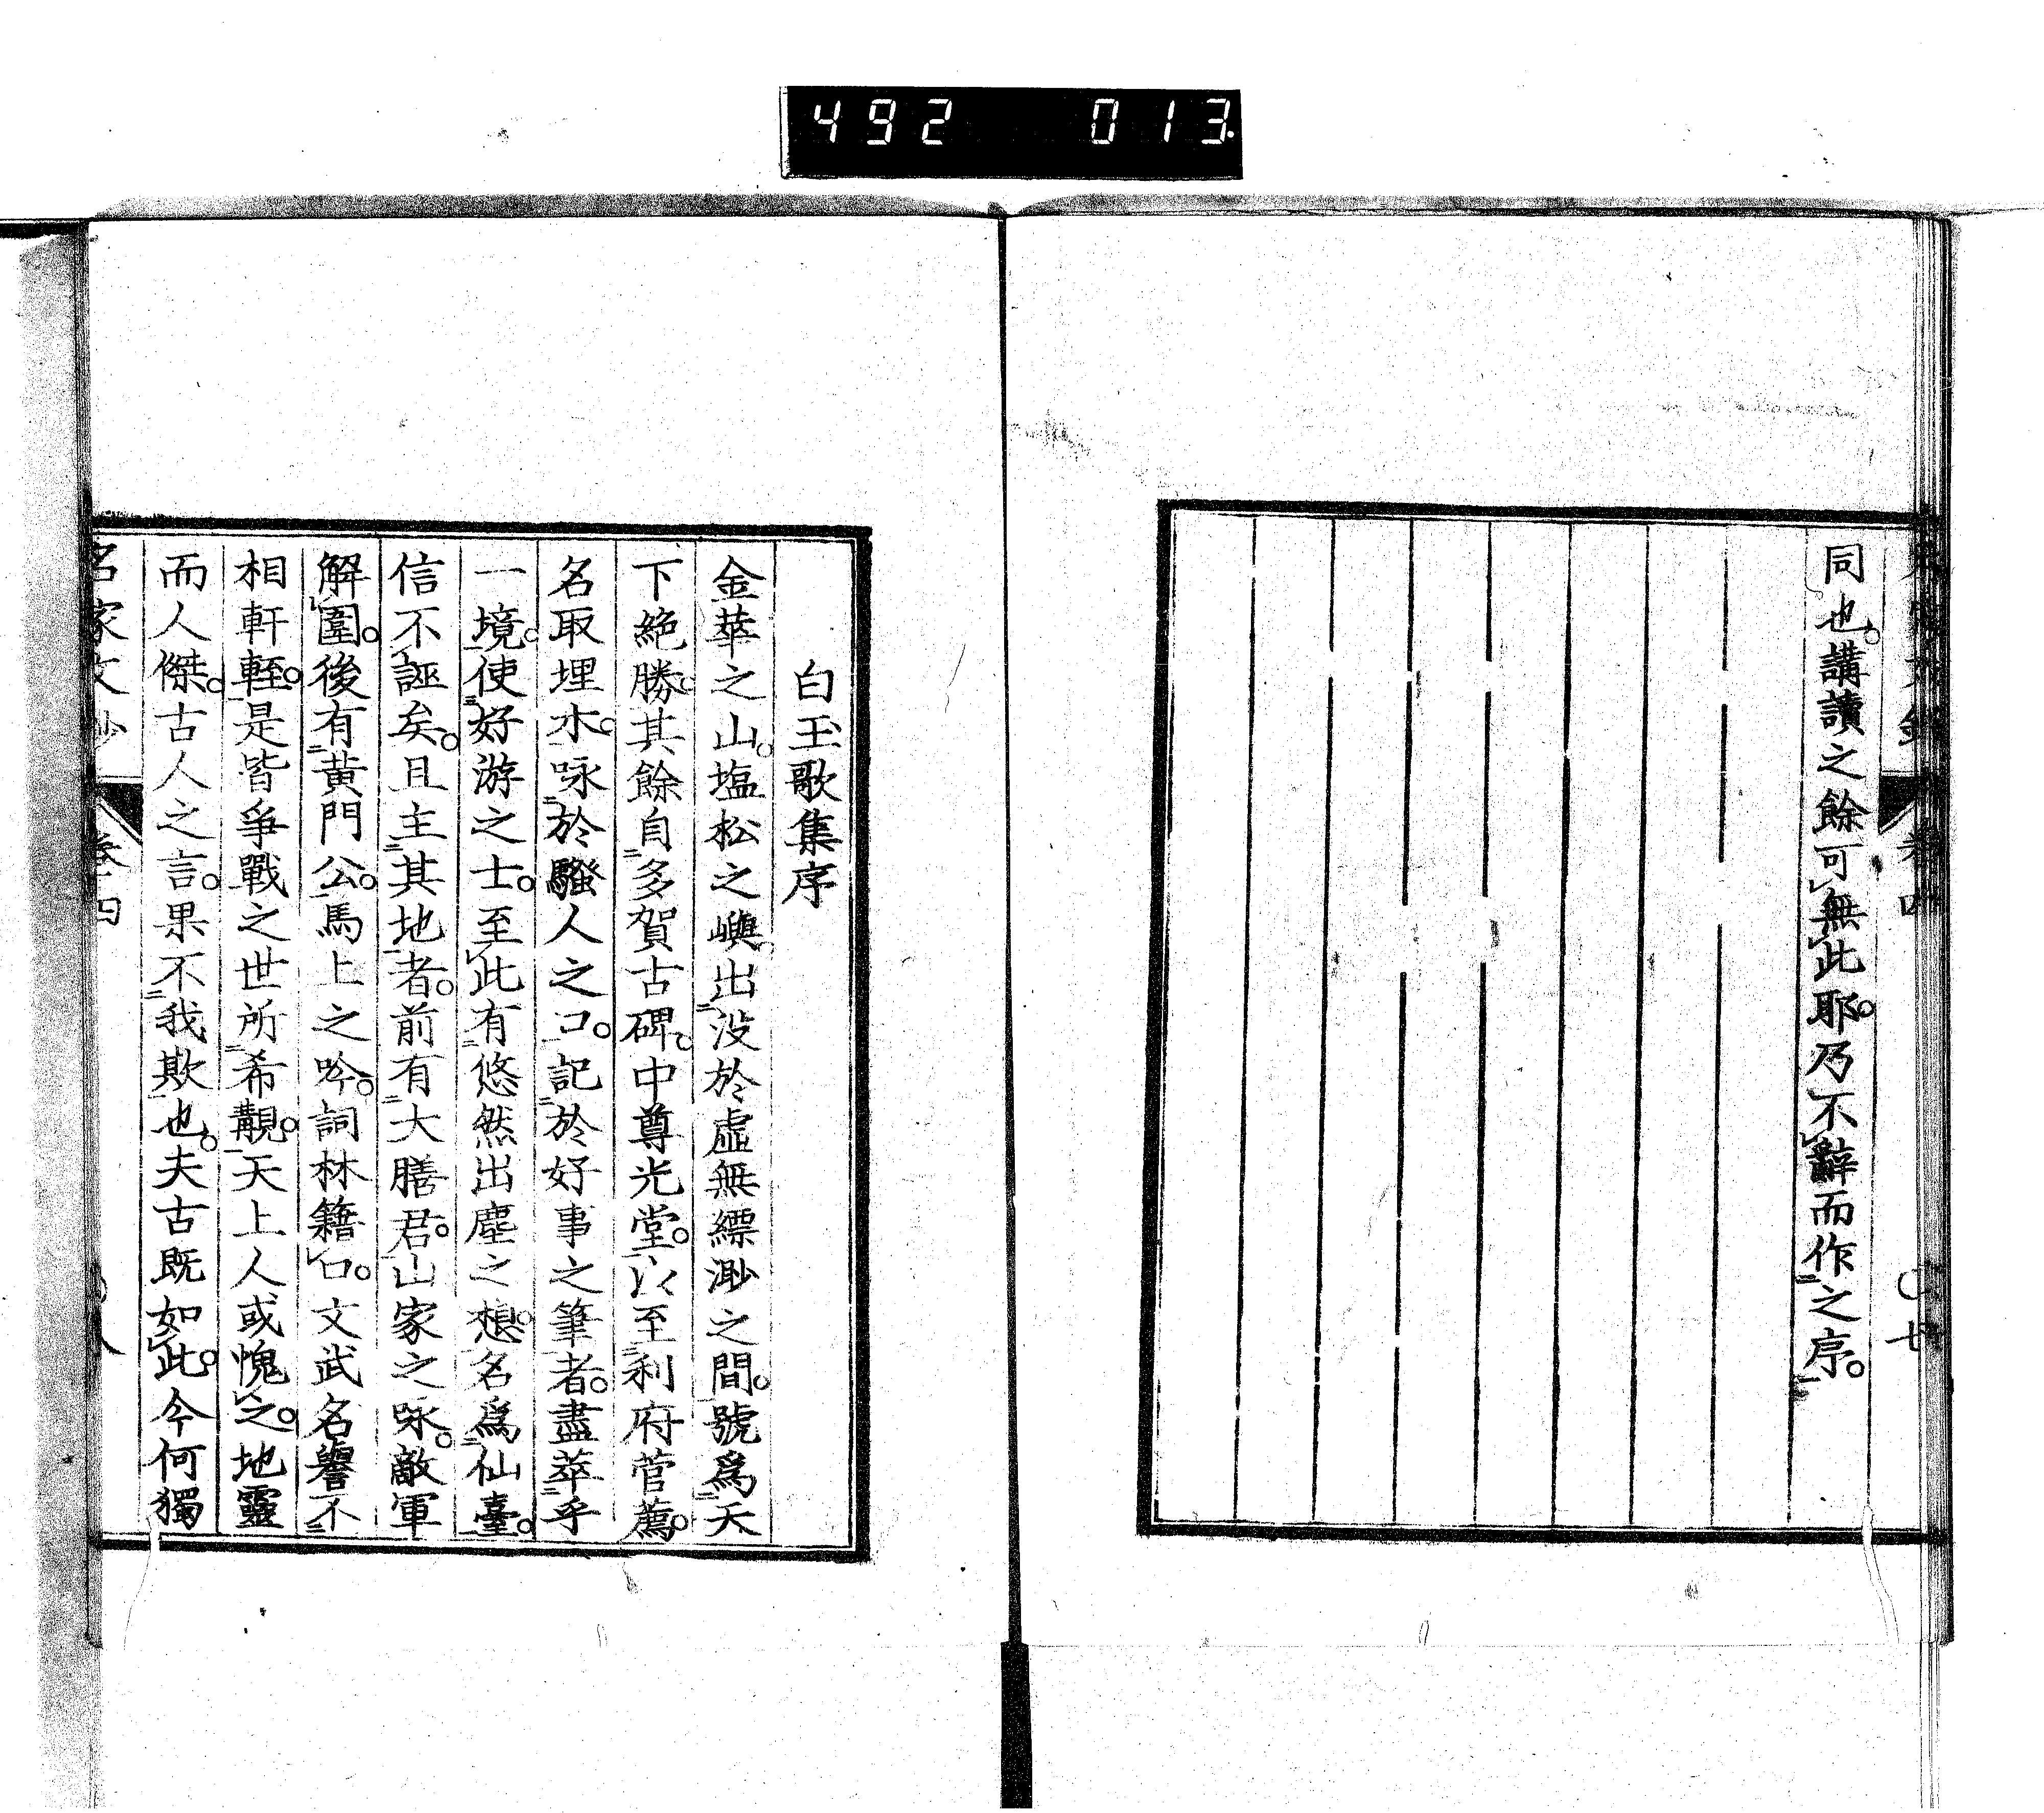 492 013
同也。講讀之餘可無此耶。乃不辭而作之序。
白玉歌集序
金華之山。塩松之嶼。出没於虛無縹渺之間。號爲天
下絶勝。其餘自多賀古碑。中尊光堂。以至利府菅薦。
名取埋木。咏於騷人之口。記於好事之筆者。盡萃乎
一境。使好游之士。至此有悠然出塵之想。名爲仙臺。
信不誣矣。且主其地者。前有大膳君。山家之咏。敵軍
解圍。後有黄門公。馬上之吟。詞林籍口。文武名譽不
相軒輊。是皆爭戰之世所希覯。天上人或愧之。地靈
而人傑。古人之言。果不我欺也。夫古既如此。今何獨
名家文鈔 卷四